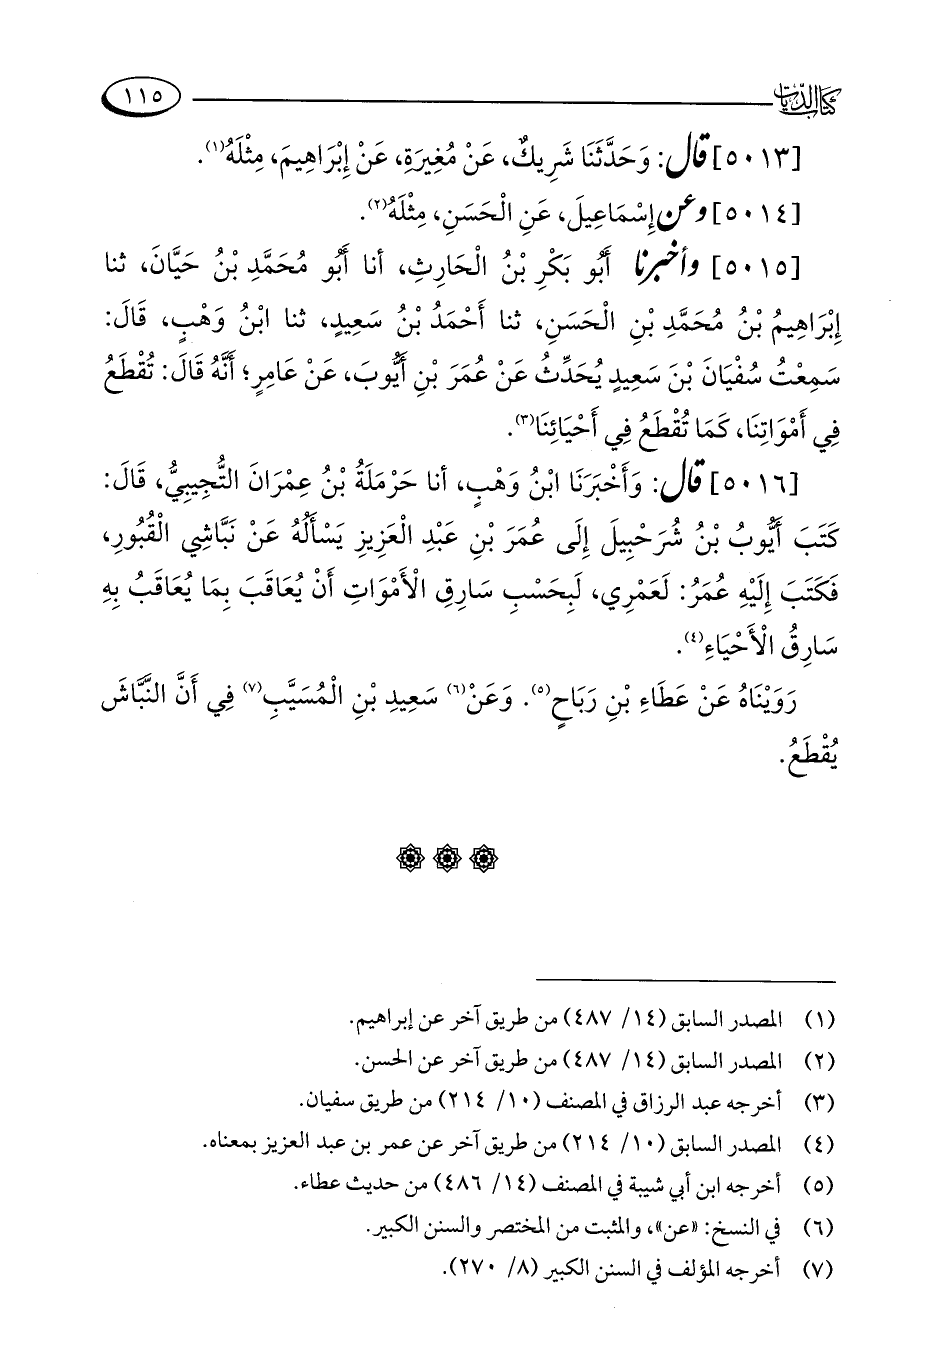 كتاب الديات
١١٥
[٥٠١٣] قال: وَحَدَّثَنَا شَرِيكٌ، عَنْ مُغِيرَةِ، عَنْ إِبْرَاهِيمَ، مِثْلَهُ(١).
[٥٠١٤] وعن إِسْمَاعِيلَ، عَنِ الْحَسَنِ، مِثْلَهُ(٢).
[٥٠١٥] وأخبرنا أَبُو بَكْرِ بْنُ الْحَارِثِ، أنا أَبُو مُحَمَّدِ بْنُ حَيَّانَ، ثنا
إِبْرَاهِيمُ بْنُ مُحَمَّدِ بْنِ الْحَسَنِ، ثنا أَحْمَدُ بْنُ سَعِيدٍ، ثنا ابْنُ وَهْبٍ، قَالَ:
سَمِعْتُ سُفْيَانَ بْنَ سَعِيدٍ يُحَدِّثُ عَنْ عُمَرَ بْنِ أَيُّوبَ، عَنْ عَامِرٍ؛ أَنَّهُ قَالَ: تُقْطَعُ
فِي أَمْوَاتِنَا، كَمَا تُقْطَعُ فِي أَحْيَائِنَا(٣).
[٥٠١٦] قال: وَأَخْبَرَنَا ابْنُ وَهْبٍ، أنا حَرْمَلَةُ بْنُ عِمْرَانَ التُّجِيبِيُّ، قَالَ:
كَتَبَ أَيُّوبُ بْنُ شُرَحْبِيلَ إِلَى عُمَرَ بْنِ عَبْدِ الْعَزِيزِ يَسْأَلُهُ عَنْ نَبَّاشِي الْقُبُورِ،
فَكَتَبَ إِلَيْهِ عُمَرُ: لَعَمْرِي، لَبِحَسْبِ سَارِقِ الْأَمْوَاتِ أَنْ يُعَاقَبَ بِمَا يُعَاقَبُ بِهِ
سَارِقُ الْأَحْيَاءِ(٤).
رَوَيْنَاهُ عَنْ عَطَاءِ بْنِ رَبَاحٍ(٥). وَعَنْ(٦) سَعِيدِ بْنِ الْمُسَيَّبِ(٧) فِي أَنَّ النَّبَّاشَ
يُقْطَعُ.
(١) المصدر السابق (١٤/ ٤٨٧) من طريق آخر عن إبراهيم.
(٢) المصدر السابق (١٤/ ٤٨٧) من طريق آخر عن الحسن.
(٣) أخرجه عبد الرزاق في المصنف (١٠/ ٢١٤) من طريق سفيان.
(٤) المصدر السابق (١٠/ ٢١٤) من طريق آخر عن عمر بن عبد العزيز بمعناه.
(٥) أخرجه ابن أبي شيبة في المصنف (١٤/ ٤٨٦) من حديث عطاء.
(٦) في النسخ: «عن»، والمثبت من المختصر والسنن الكبير.
(٧) أخرجه المؤلف في السنن الكبير (٨/ ٢٧٠).